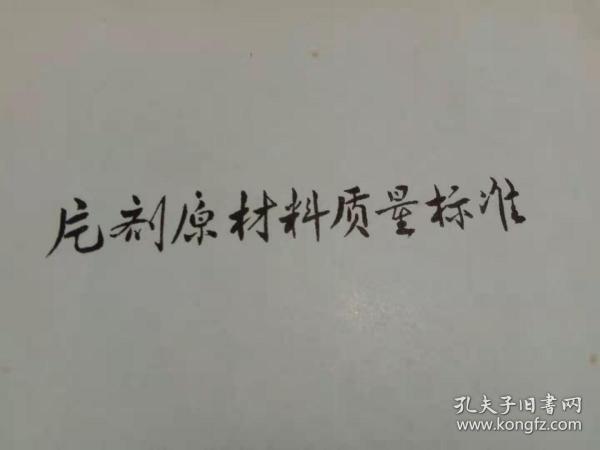 片剂原材料质量标准
孔夫子旧书网
www.kongfz.com